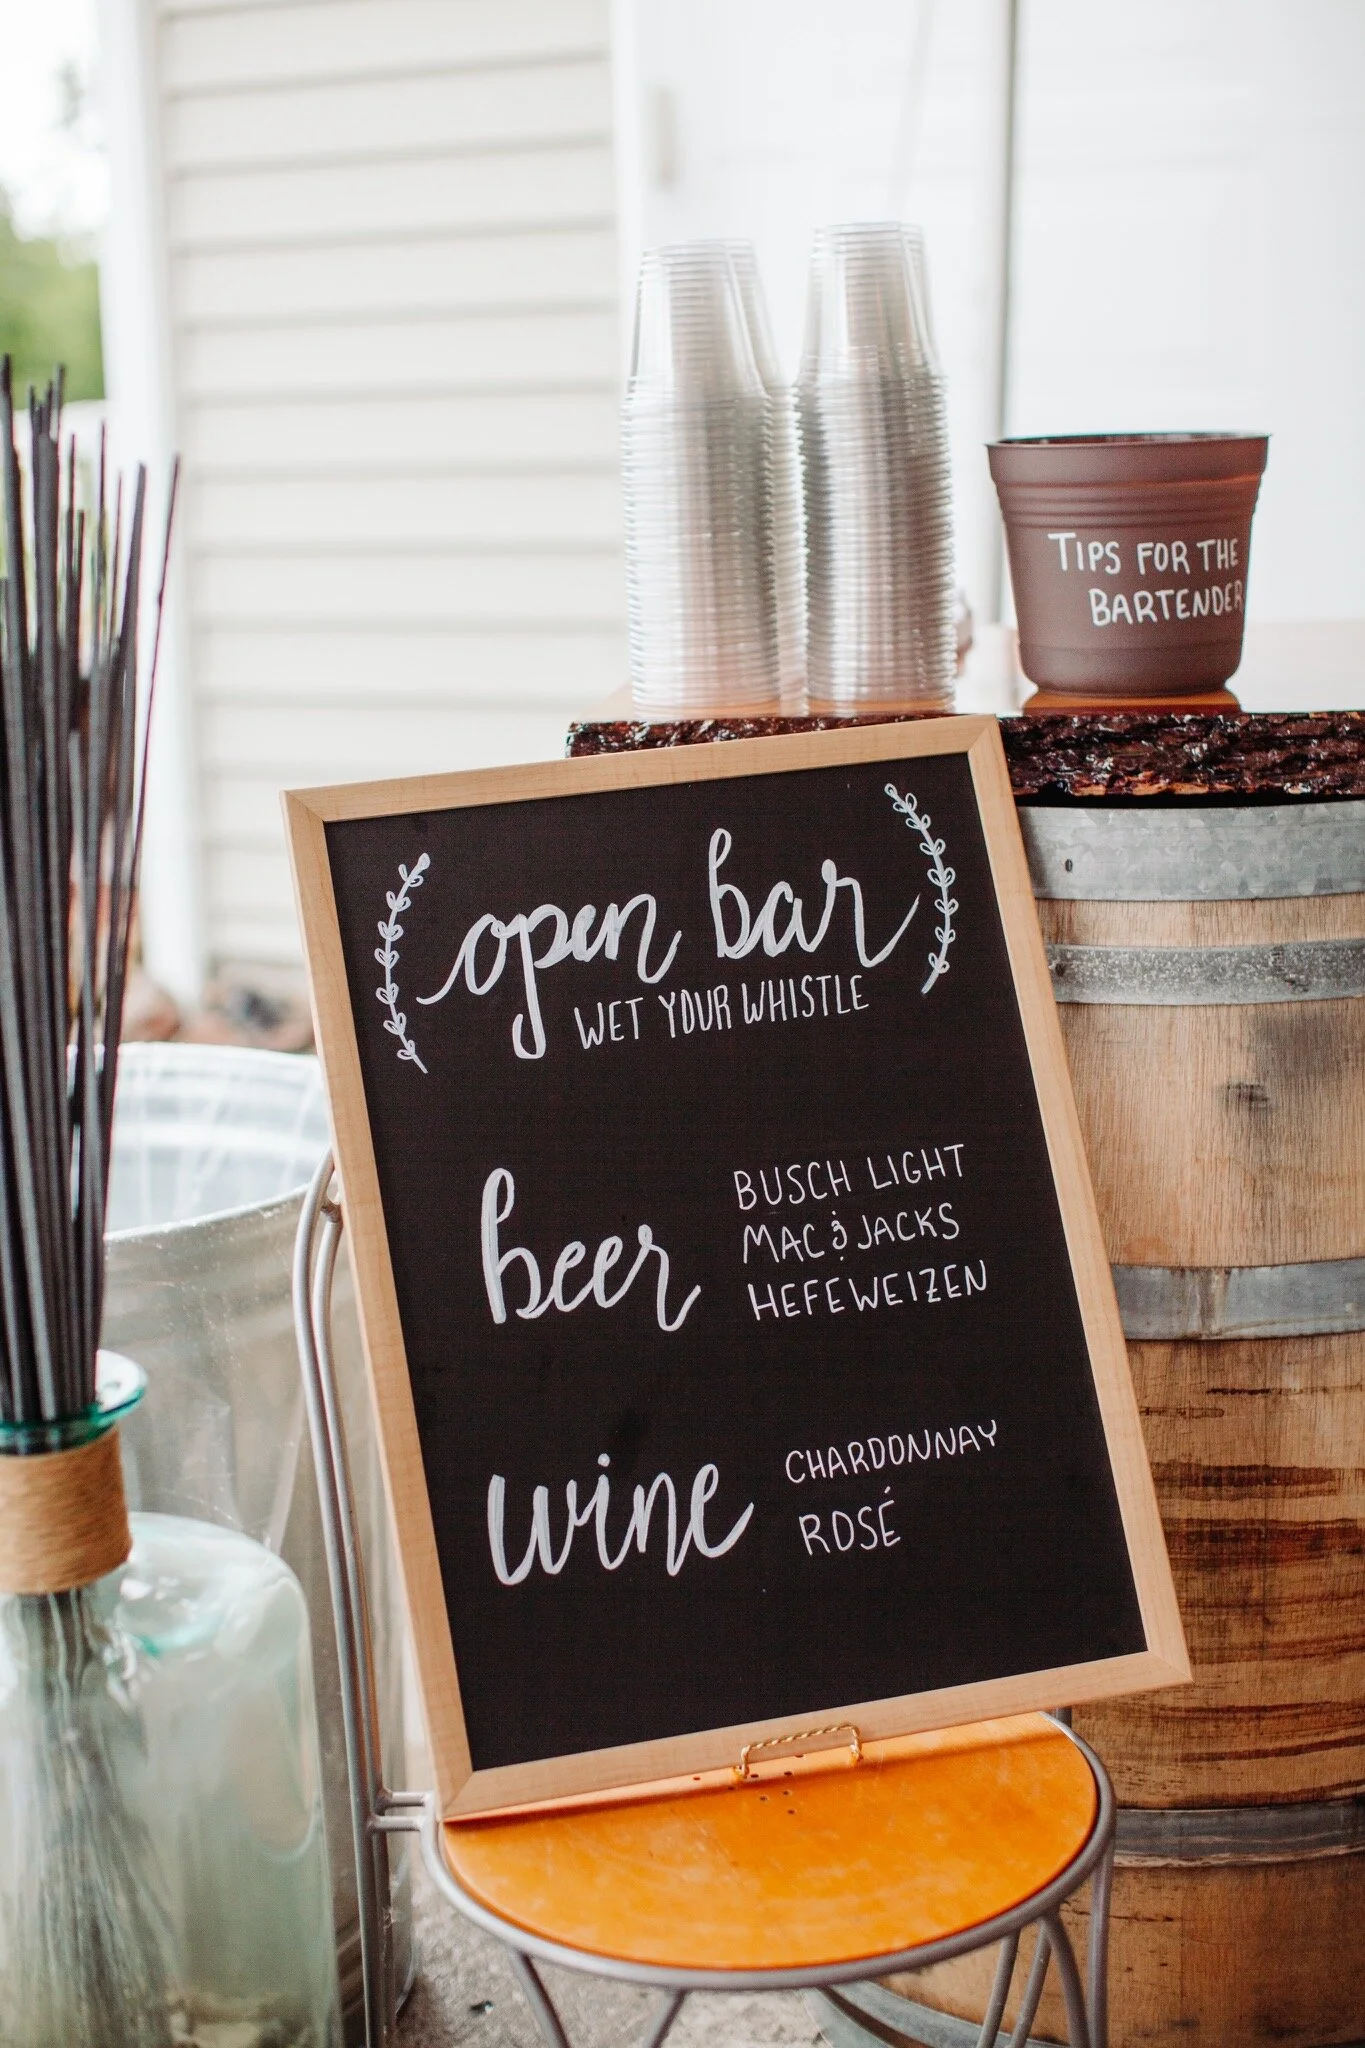 TIPS FOR THE
BARTENDER
open bar
WET YOUR WHISTLE
beer
BUSCH LIGHT
MAC & JACKS
HEFEWEIZEN
wine
CHARDONNAY
ROSÉ